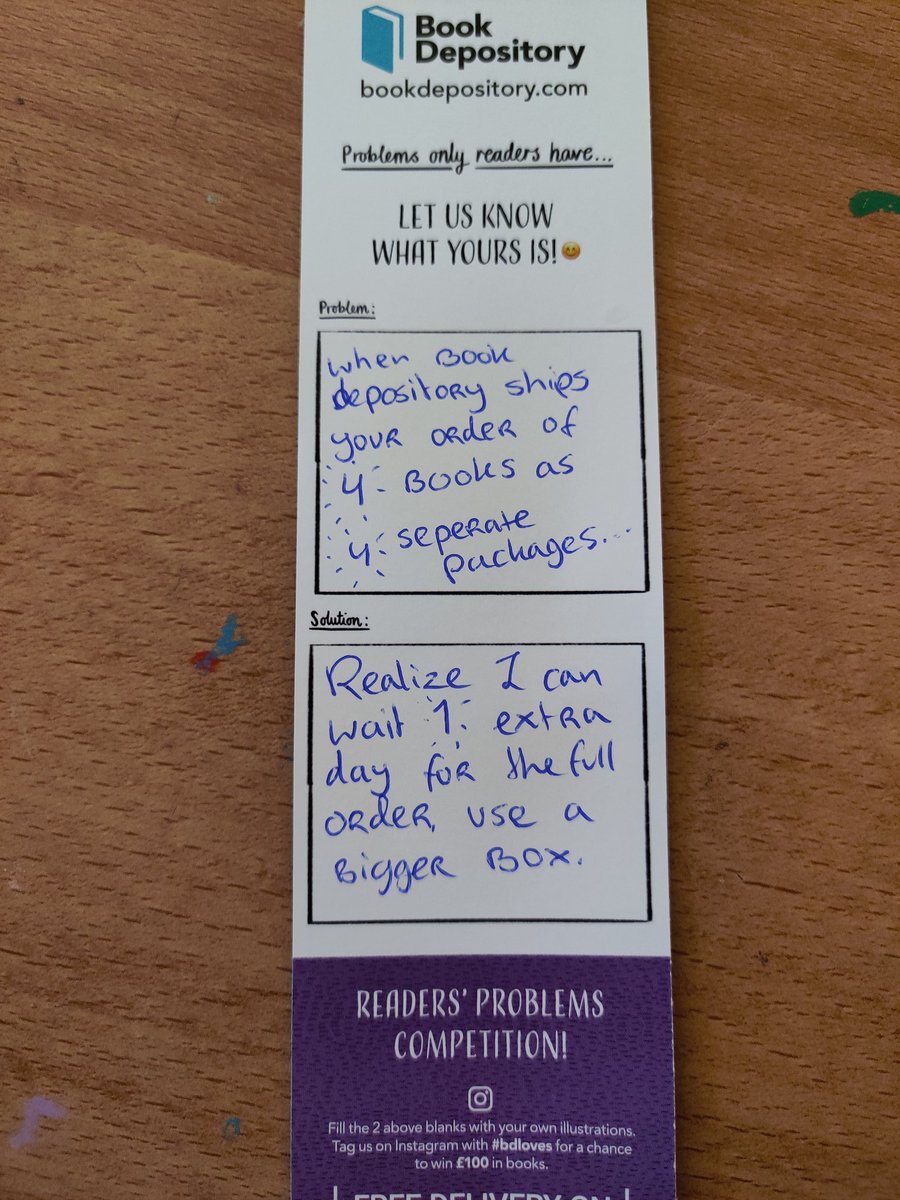 Book
Depository
bookdepository.com
Problems only readers have...
LET US KNOW
WHAT YOURS IS!😊
Problem:
when Book
depository ships
your order of
4 Books as
4 seperate
packages...
Solution:
Realize I can
wait 1 extra
day for the full
order, use a
Bigger Box.
READERS' PROBLEMS
COMPETITION!
Fill the 2 above blanks with your own illustrations.
Tag us on Instagram with #bdloves for a chance
to win £100 in books.
FREE DELIVERY ON